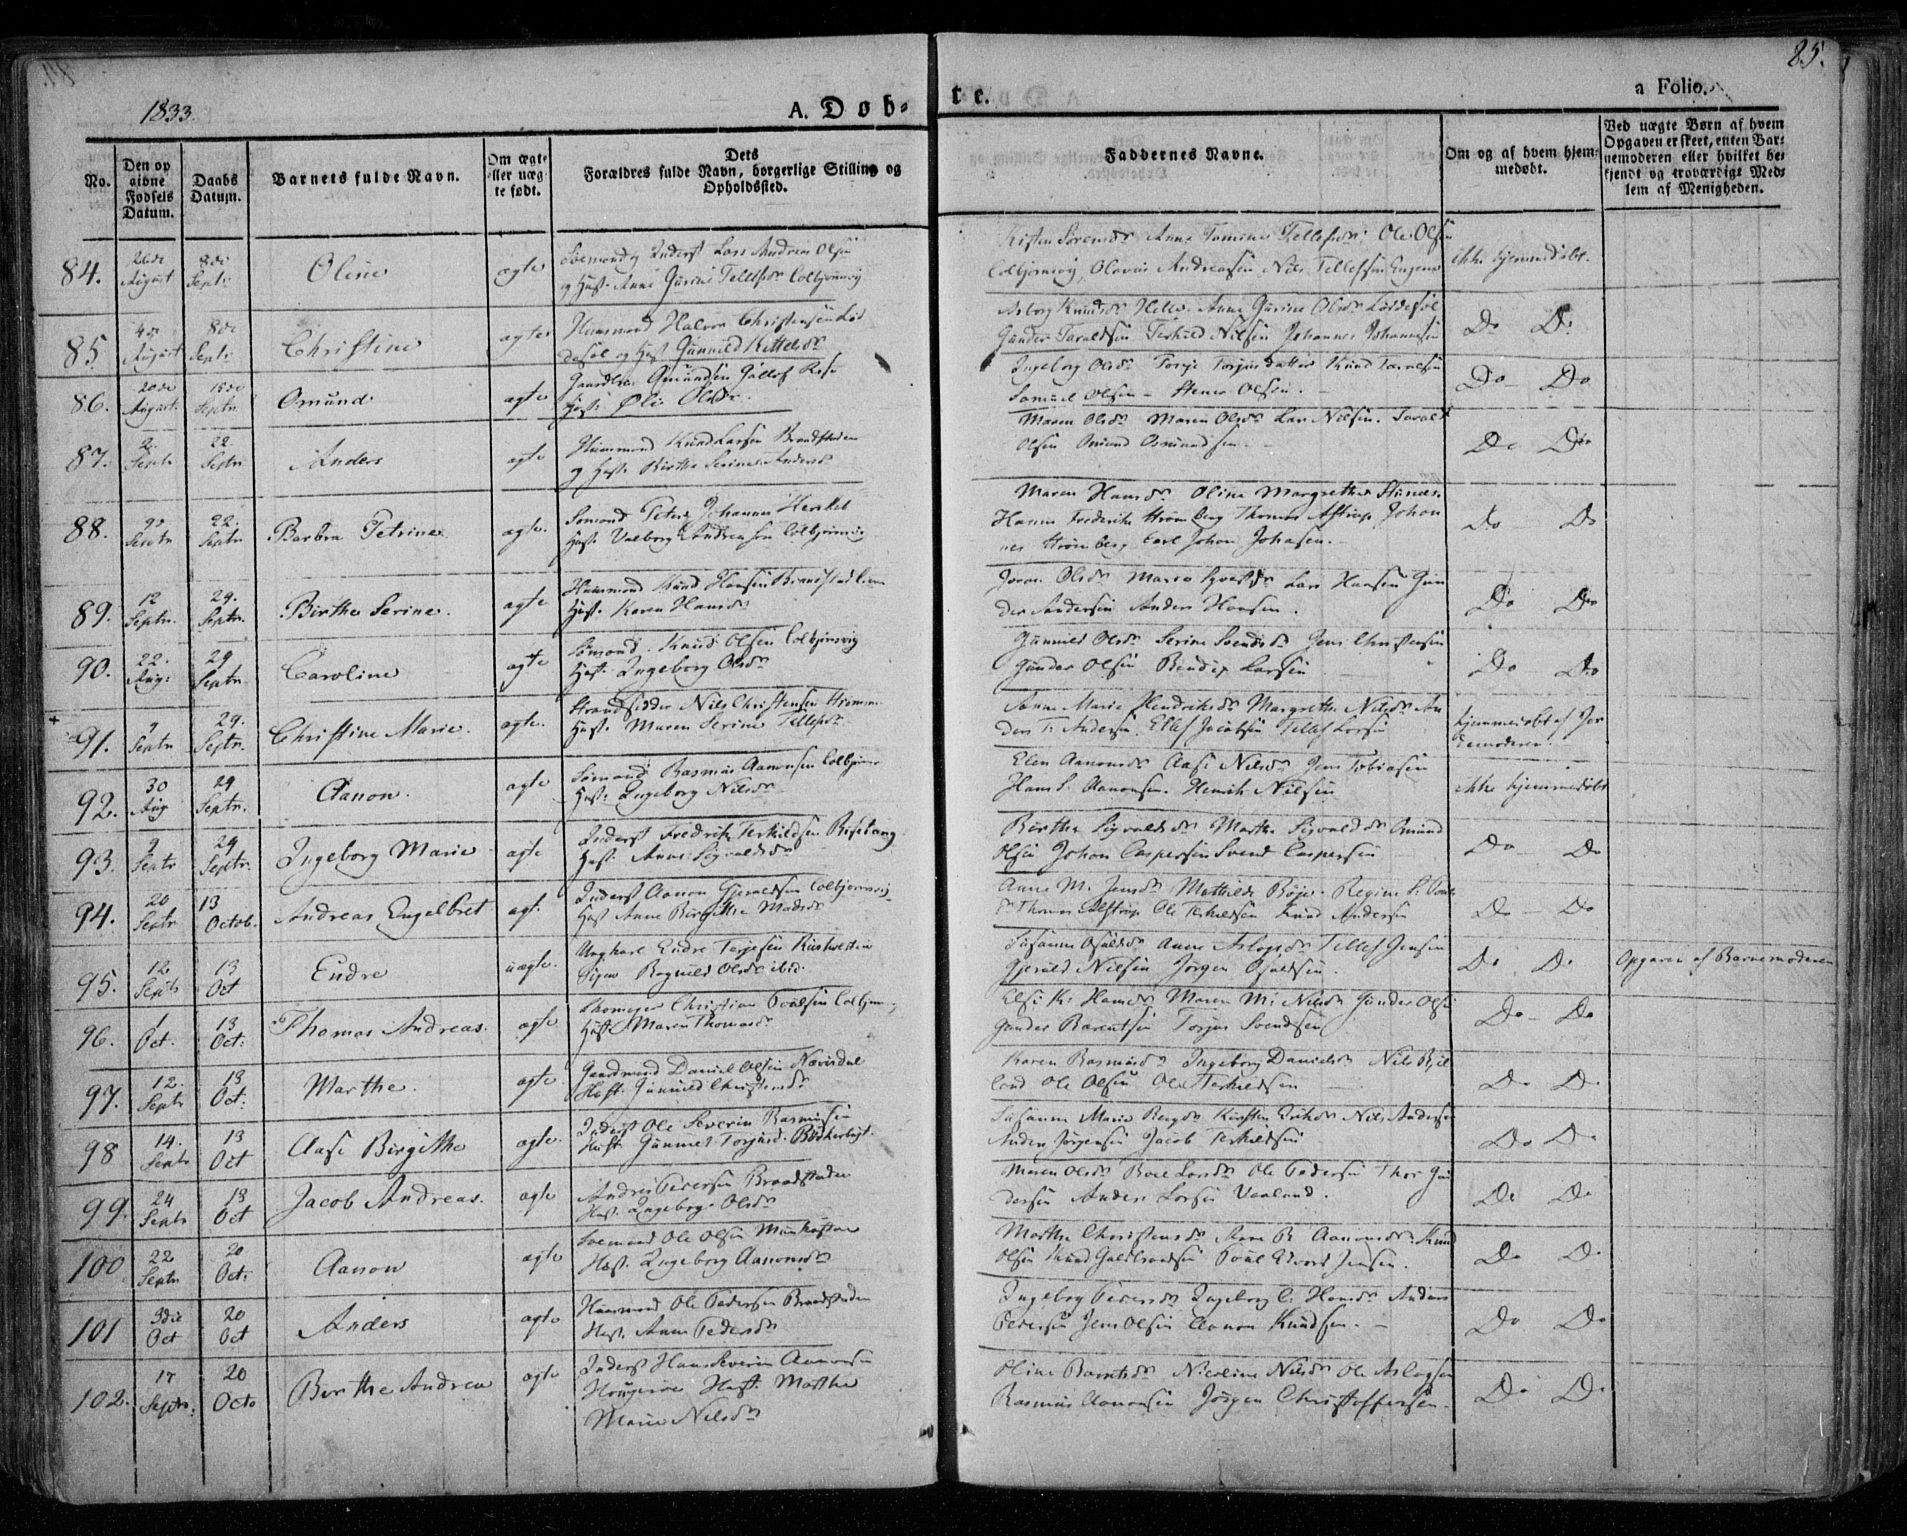 1833.
A. Døb-
te.
85.
a Folio.
No.
Den op
givne
Fødsels
Datum.
Daabs
Datum.
Barnets fulde Navn.
Om ægte
eller uæg
te født.
Dets
Forældres fulde Navn, borgerlige Stilling og
Opholdssted.
Faddernes Navne.
Om og af hvem hjem-
medøbt.
Ved uægte Børn af hvem
Opgaven er skeet, enten Bar-
nemoderen eller hvilket be-
kjendt og troværdigt Med-
lem af Menigheden.
84. 26de August 8de Septr Oline ægte
Inderst Lars Andreas Olsen
og Hust. Anne Gurine Tellefsdr Colbjørnsvig
Kisten Sørensdr Anne Tomine Tellefsdr Ole Olsen
Colbjørnsvig, Olavus Andreasen Nils Tellefsen
ikke hjemmedøbt.
85 4de August 8de Septr Christine ægte
Huusmand Halvor Christensen Lød
desøl og Hust Gunnild Kittelsdr
Aslaug Knudsdr Helle. Anne Gurine Olsdr Løddesøl
Gunder Taraldsen Terkild Nilsen Johannes Johannesen
Do Do
86. 20de August. 15de Septr Omund ægte
Omundsen Rose
Hust. Olsdr.
Ingeborg Olsdr Torje Torjusdatter Knud Taraldsen
Samuel Olsen - Stener Olsen.
Do Do
87. 2. Septr 22 Septr Anders ægte
Huusmand Knud Larsen Brandstaden
og Hust. Birthe Serine Andersdr
Maren Olsdr Maren Olsdr Lars Nilsen. Tarald
Olsen Omund Osmundsen.
Do Do
88. Septr 22. Septr Barbra Petrine ægte.
Sømand Peter Johannes Henkel
Hust. Valborg Andreasen Colbjørnsvig
Maren Hansdr Oline Margrethe
Hanne Frederikke Strømberg Thomas Alstrup Johan
nes Strømberg Carl Johan Johasen.
Do Do
89. 12 Septr. 29. Septr. Birthe Serine. ægte
Huusmand Knud Hansen Brandstadlien
Hust. Karen Hansdr
Olsdr Maren Lars Hansen Gun
der Andersen Anders Hansen.
Do Do
90. 22. Aug: 29 Septr Caroline ægte
Sømand. Knud Olsen Colbjørnsvig
Hust. Ingeborg Olsdr
Gunnild Olsdr Serine Svendsdr Jens Christensen
Gunder Olsen Bendix Larsen
Do Do
91. 9 Septr 29. Septr. Christine Marie. ægte.
Strandsidder Nils Christensen
Hust. Maren Serine Tellefsdr
Anne Marie Hendriksdr Margrethe Nilsdr An
ders T. Andersen, Ellef Jacobsen Tellef Larsen
hjemmedøbt af Jor
demoderen.
92. 30 Aug 29 Septr. Aanon. ægte
Sømand Rasmus Aanonsen Colbjørns
Hust. Ingeborg Nilsdr
Elen Aanonsdr Aase Nilsdr Jens Tobiasen
Hans S. Aanonsen. Henrik Nilsen
ikke hjemmedøbt
93. 9 Septr 29 Septr. Ingeborg Marie ægte
Inderst Fredrik Terkildsen Bisetang
Hust. Anne Sigvaldsdr
Birthe Sigvaldsdr Marthe Sigvaldsdr Omund
Olsen Johan Caspersen Svend Caspersen
Do Do
94. 20 Septr 13 Octob. Andreas Engelbret ægt.
Inderst Aanon Gjeruldsen Colbjørnsvig
Hust Anne Birgitte Madsdr
Anne M. Jensdr Mathilde Bøje. Regine
Thomas Alstrup Ole Terkildsen Knud Andersen
Do - Do
95. 12 Septr 13 Oct Endre uægte.
Ungkarl Endre Terjesen
Pigen Ragnild Olsdr ibid.
Susanne Anne Aslagsdr Tellef Jensen
Gjeruld Nilsen Jørgen
Do Do
Opgaven af Barnemoderen
96. 1 Oct. 13 Oct: Thomas Andreas. ægte
Christian Poulsen Colbjørns
Hust Maren Thomasdr
Else K. Hansdr Maren M. Nilsdr Gunder Olsen
Gunder Barentsen Torjus Svendsen
Do - Do
97. 12. Septr 13 Oct: Marthe. ægte
Gaardmand Daniel Olsen Næwisdal
Hust. Gunnild Christensdr
Karen Rasmusdr Ingeborg Danielsdr Nils
land Ole Olsen Ole Terkildsen
Do Do
98 14. Septr 13 Oct Aase Birgithe ægte.
Inderst Ole Severin Rasmusen
Hust. Gunnild Torjusd.
Susanne Marie Bergsdr Kirsten Eriksdr Nils Andersen
Anders Jørgensen Jacob Terkildsen
Do Do
99. 24 Septr 13 Oct Jacob Andreas. ægte
Andreas Pedersen Brandstaden
Hust. Ingeborg Olsdr
Maren Olsdr Larsdr Ole Pedersen Gun
dersen Anders Larsen Vaaland.
Do Do
100 22 Septr 20 Oct: Aanon ægte
Sømand Ole Olsen
Hust. Ingeborg Aanonsdr
Marthe Christensdr Anne B. Aanonsdr. Knud
Olsen Knud Poul Edvard Jensen.
Do Do
101 3die Oct 20 Oct Anders ægte
Huusmand Ole Pedersen Brandstaden
Hust. Anne Pedersdr
Ingeborg Pedersdr Ingeborg C. Hansdr Anders
Pedersen Jens Olsen Aanon Knudsen.
Do Do
102. 17 Septr. 20 Octo Berthe Andrea ægte
Inderst Hans Severin Aanonsen
Hust. Marthe
Marie Nilsdr
Oline Barntsdr Nicoline Nilsdr Ole Aslagsen
Rasmus Aanonsen Jørgen Christoffersen.
Do Do